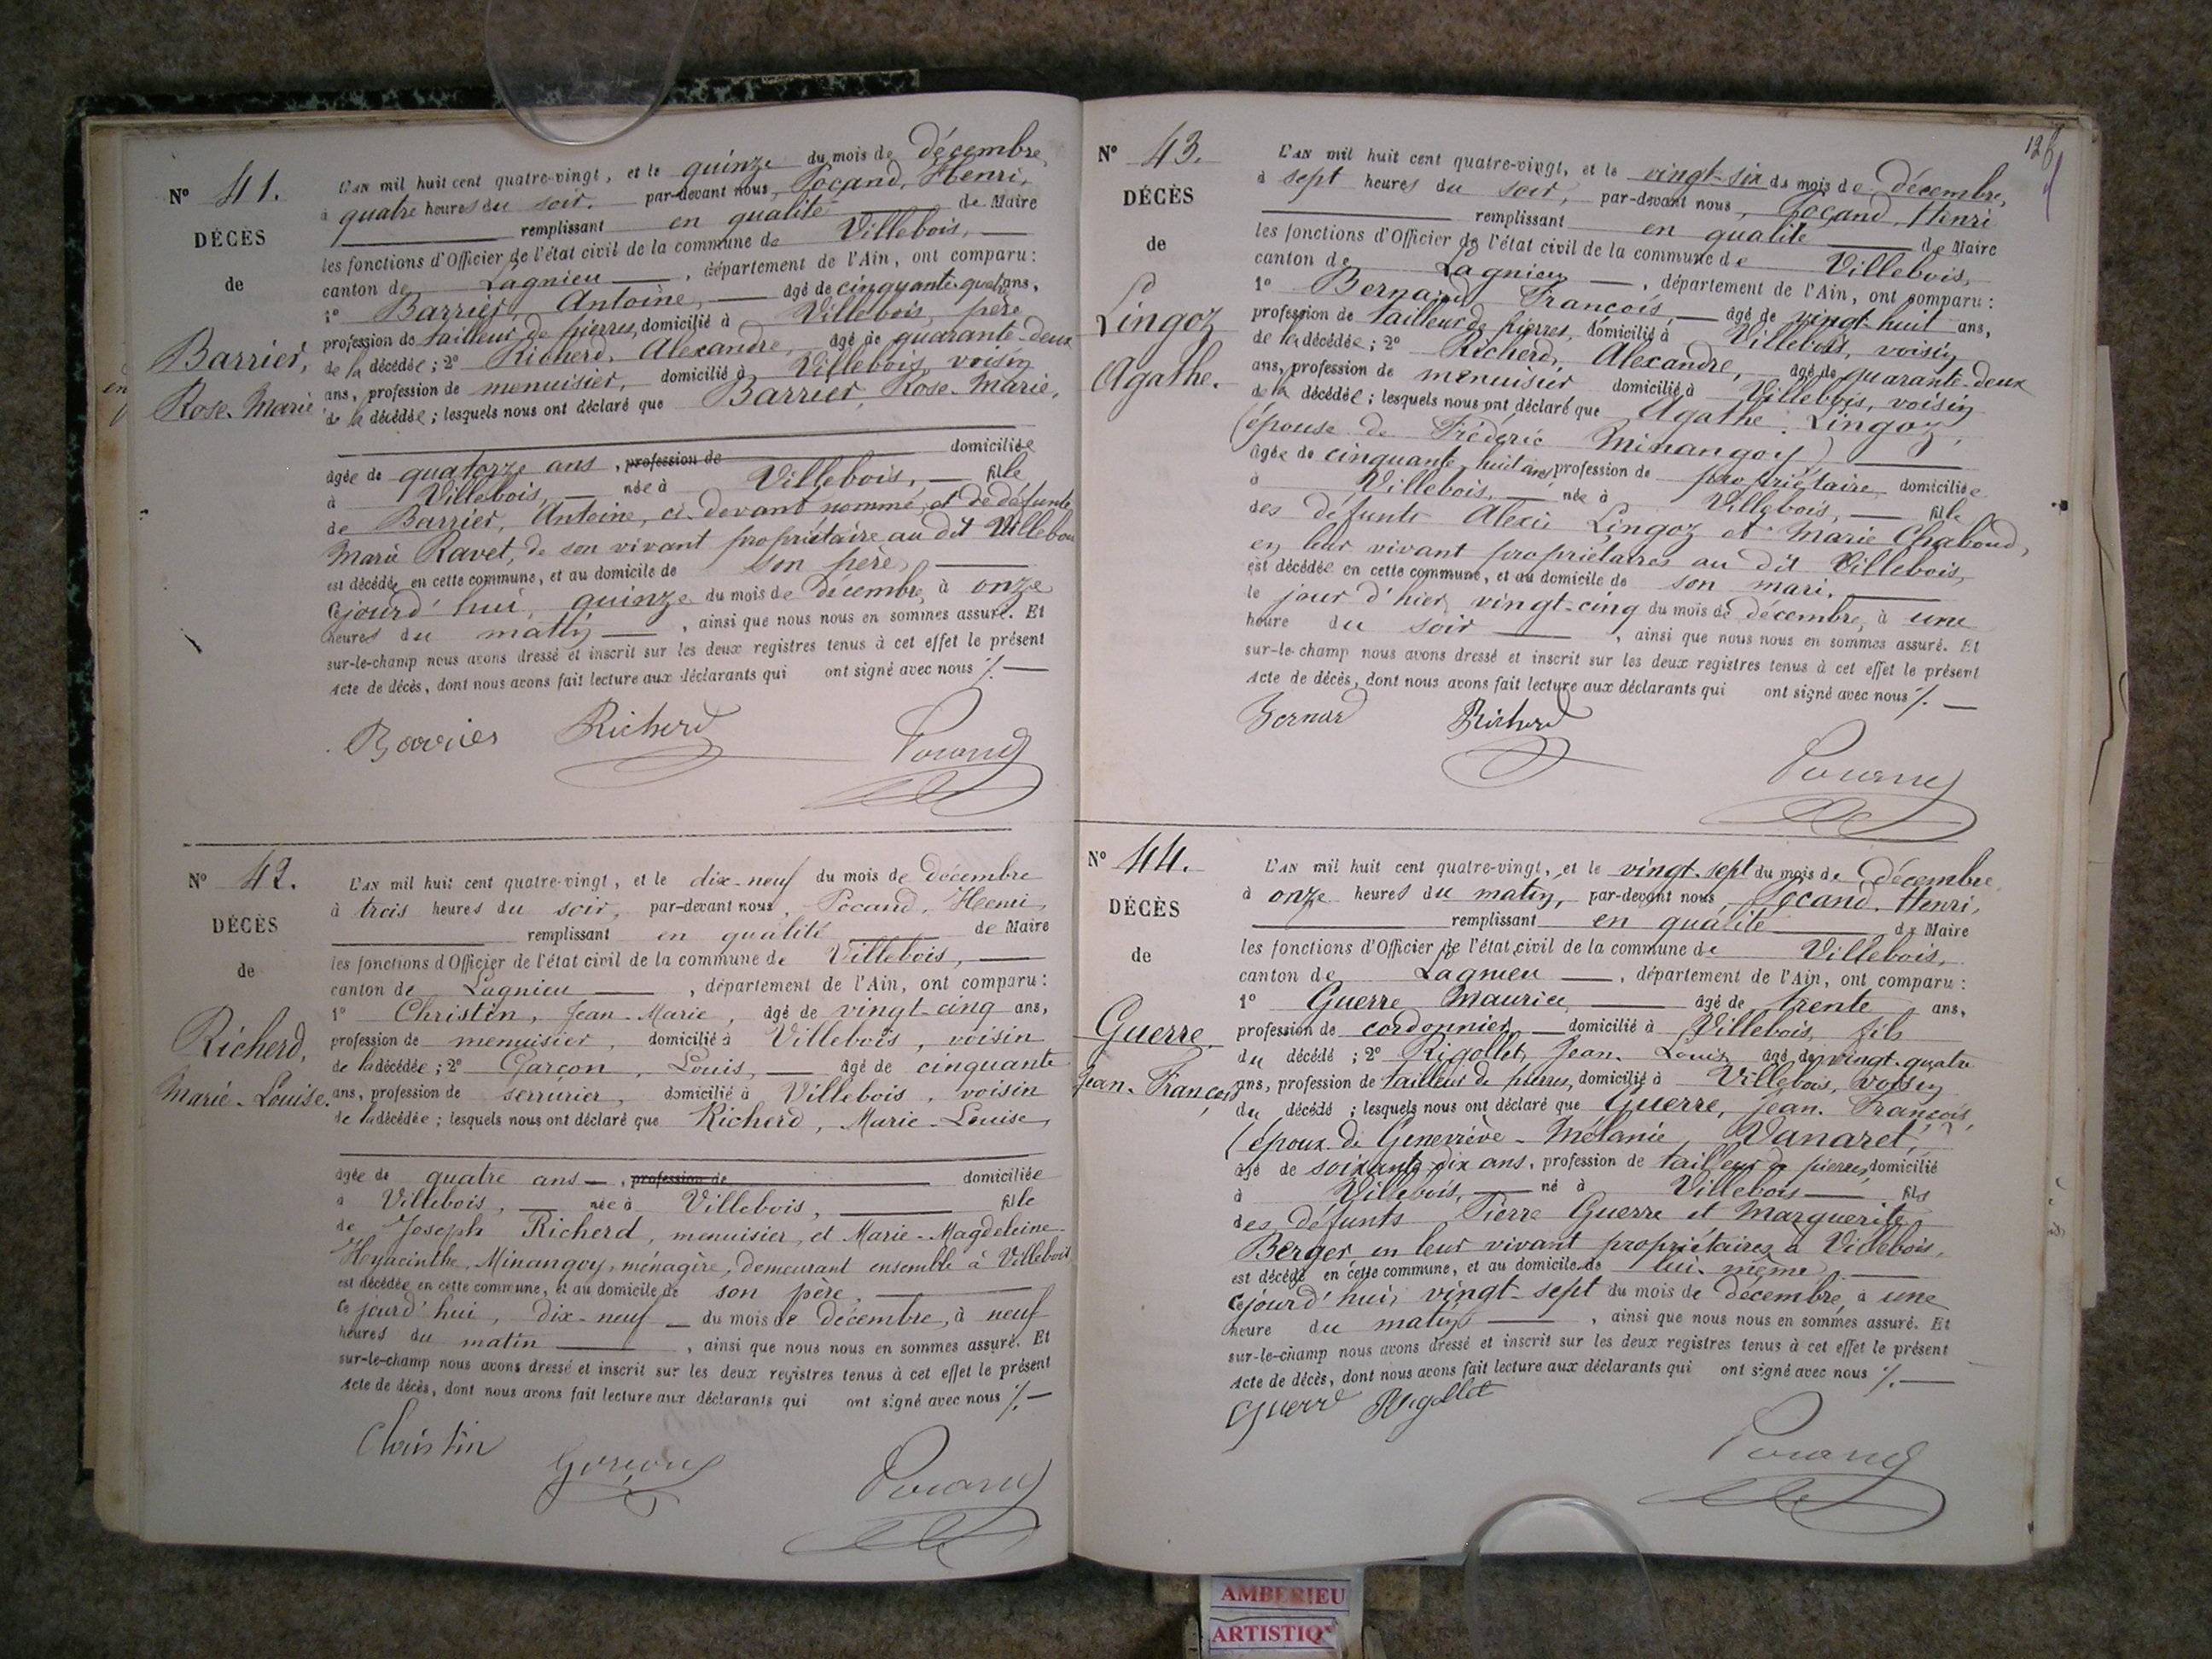 N° 41.
DÉCÈS
de
Barrier,
Rose-Marie
L'AN mil huit cent quatre-vingt, et le quinze du mois de décembre,
à quatre heures du soir, par-devant nous, Pocand, Henri,
remplissant en qualité de Maire
les fonctions d'Officier de l'état civil de la commune de Villebois,
canton de Lagnieu, département de l'Ain, ont comparu:
1° Barrier, Antoine, âgé de cinquante-quatre ans,
profession de tailleur de pierres, domicilié à Villebois, père
de la décédée; 2° Richerd, Alexandre, âgé de quarante-deux
ans, profession de menuisier, domicilié à Villebois, voisin
de la décédée; lesquels nous ont déclaré que Barrier, Rose-Marie,
âgée de quatorze ans, profession de domiciliée
à Villebois, née à Villebois, fille
de Barrier, Antoine, ci-devant nommé, et de défunte
Marie Ravet, de son vivant propriétaire au dit Villebois
est décédée en cette commune, et au domicile de son père,
Cejourd'hui, quinze du mois de décembre, à onze
heures du matin, ainsi que nous nous en sommes assuré. Et
sur-le-champ nous avons dressé et inscrit sur les deux registres tenus à cet effet le présent
Acte de décès, dont nous avons fait lecture aux déclarants qui ont signé avec nous ./.
Barrier Richerd Pocand
N° 42.
DÉCÈS
de
Richerd,
Marie-Louise.
L'AN mil huit cent quatre-vingt, et le dix-neuf du mois de décembre
à trois heures du soir, par-devant nous, Pocand, Henri,
remplissant en qualité de Maire
les fonctions d'Officier de l'état civil de la commune de Villebois,
canton de Lagnieu, département de l'Ain, ont comparu:
1° Christin, Jean-Marie, âgé de vingt-cinq ans,
profession de menuisier, domicilié à Villebois, voisin
de la décédée; 2° Garçon, Louis, âgé de cinquante
ans, profession de serrurier, domicilié à Villebois, voisin
de la décédée; lesquels nous ont déclaré que Richerd, Marie-Louise,
âgée de quatre ans, profession de domiciliée
à Villebois, née à Villebois, fille
de Joseph Richerd, menuisier, et Marie-Magdeleine-
Hyacinthe, Minangoy, ménagère, demeurant ensemble à Villebois
est décédée en cette commune, et au domicile de son père,
Ce jourd'hui, dix-neuf du mois de décembre, à neuf
heures du matin, ainsi que nous nous en sommes assuré. Et
sur-le-champ nous avons dressé et inscrit sur les deux registres tenus à cet effet le présent
Acte de décès, dont nous avons fait lecture aux déclarants qui ont signé avec nous ./.
Christin Garçon Pocand
N° 43.
DÉCÈS
de
Lingoz
Agathe.
L'AN mil huit cent quatre-vingt, et le vingt-six du mois de décembre,
à sept heures du soir, par-devant nous, Pocand, Henri
remplissant en qualité de Maire
les fonctions d'Officier de l'état civil de la commune de Villebois,
canton de Lagnieu, département de l'Ain, ont comparu:
1° Bernard, François, âgé de vingt-huit ans,
profession de tailleur de pierres, domicilié à Villebois, voisin
de la décédée; 2° Richerd, Alexandre, âgé de quarante-deux
ans, profession de menuisier domicilié à Villebois, voisin
de la décédée; lesquels nous ont déclaré que Agathe Lingoz,
(épouse de Fréderic Minangoy)
âgée de cinquante-huit ans, profession de propriétaire, domiciliée
à Villebois, née à Villebois, fille
des défunts Alexis Lingoz et Marie Chaboud,
en leur vivant propriétaires au dit Villebois,
est décédée en cette commune, et au domicile de son mari,
le jour d'hier, vingt-cinq du mois de décembre, à une
heure du soir, ainsi que nous nous en sommes assuré. Et
sur-le-champ nous avons dressé et inscrit sur les deux registres tenus à cet effet le présent
Acte de décès, dont nous avons fait lecture aux déclarants qui ont signé avec nous ./.
Bernard Richerd
Pocand
N° 44.
DÉCÈS
de
Guerre
Jean-François
L'AN mil huit cent quatre-vingt, et le vingt-sept du mois de décembre
à onze heures du matin, par-devant nous, Pocand, Henri,
remplissant en qualité de Maire
les fonctions d'Officier de l'état civil de la commune de Villebois,
canton de Lagnieu, département de l'Ain, ont comparu:
1° Guerre Maurice, âgé de trente ans,
profession de cordonnier, domicilié à Villebois, fils
du décédé; 2° Rigollet, Jean-Louis, âgé de vingt-quatre
ans, profession de tailleur de pierres, domicilié à Villebois, voisin
du décédé; lesquels nous ont déclaré que Guerre, Jean-François,
(époux de Geneviève-Mélanie, Vanaret,)
âgé de soixante-dix ans, profession de tailleur de pierres, domicilié
à Villebois, né à Villebois, fils
des défunts Pierre Guerre et Marguerite
Berger en leur vivant propriétaires à Villebois,
est décédé en cette commune, et au domicile de lui-même,
Cejourd'hui, vingt-sept du mois de décembre, à une
heure du matin, ainsi que nous nous en sommes assuré. Et
sur-le-champ nous avons dressé et inscrit sur les deux registres tenus à cet effet le présent
Acte de décès, dont nous avons fait lecture aux déclarants qui ont signé avec nous ./.
Guerre Rigollet
Pocand
AMBERIEU
ARTISTIQ